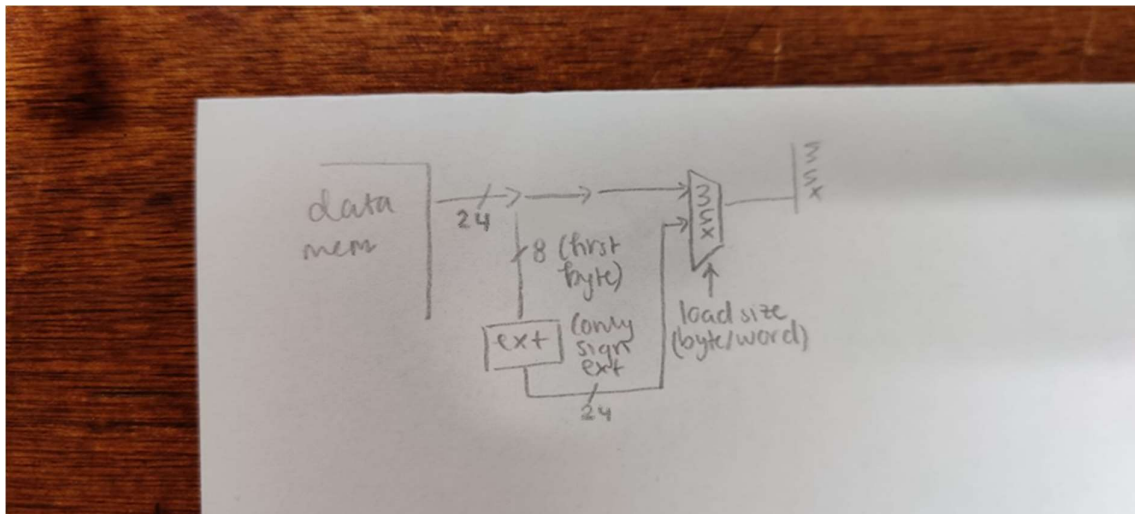 data
mem
24
8 (first
byte)
ext
(only
sign
ext
24
mux
load size
(byte/word)
mux